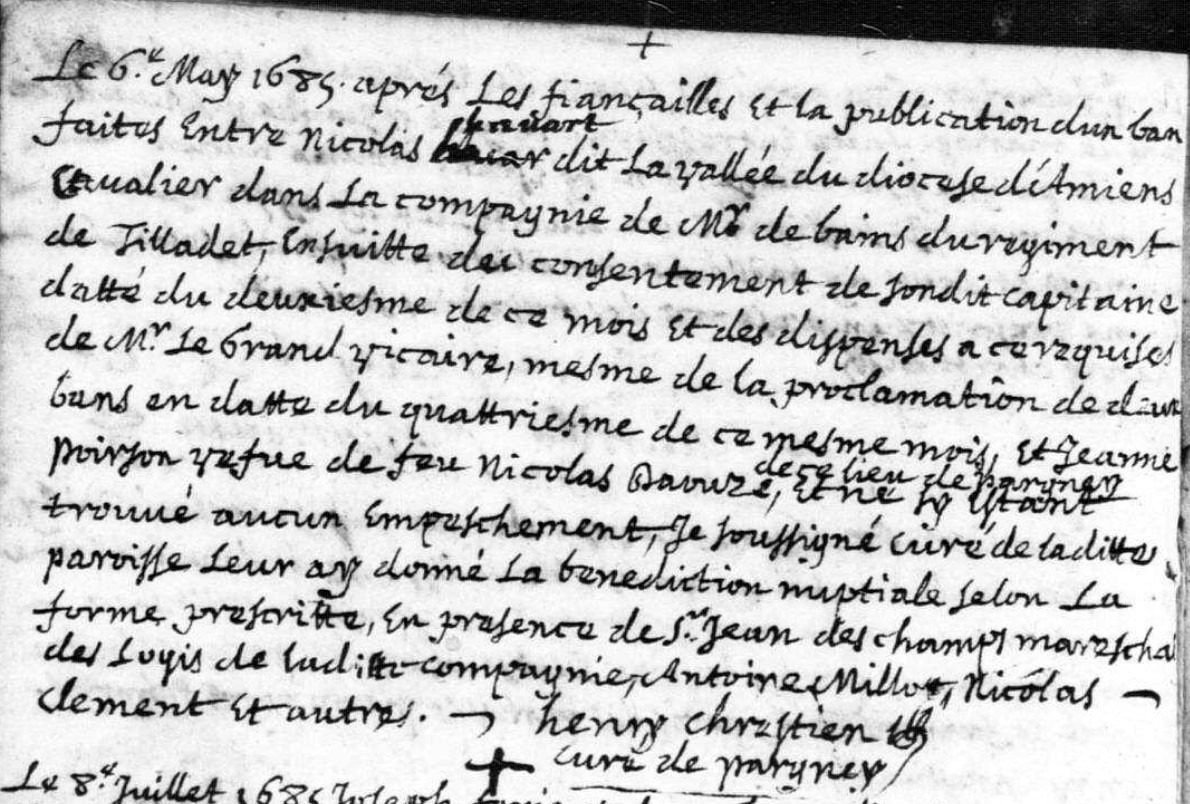 Le 6.e May 1685. aprés Les fiançailles Et la publication dun ban
faites Entre Nicolas hauart dit La vallée du diocese d'Amiens
Cavualier dans La compagnie de Mr de bains du regiment
de Tilladet, Ensuitte deu consentement de sondit capitaine
datté du deuxiesme de ce mois Et des dispenses a ce requises
de Mr. Le Grand vicaire, mesme de la proclamatiôn de deux
bans en datte du quattriesme de ce mesme mois, Et Jeanne
poirson vefue de feu Nicolas Daouze, de ce lieu de pargney
Et ne sy Estant
trouué aucun Empeschement, Je soussigné curé de laditte
paroisse Leur ay donné La benediction nuptiale selon La
forme prescritte, En presence de Sr. Jean des champs mareschal
des Logis de laditte compagnie, Antoine Millot, Nicolas
Clement Et autres. henry Chrestien
curé de pargney
Le 8.e Juillet 1685 Joseph